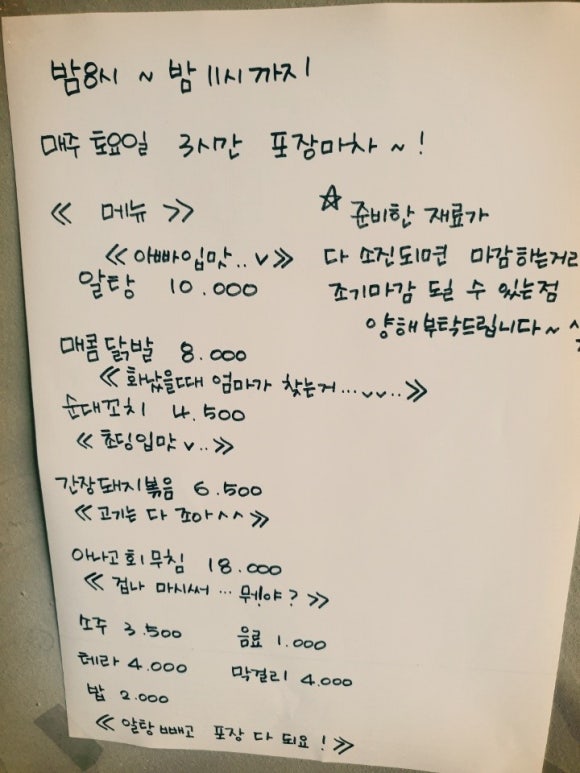 밤8시 ~ 밤 11시까지
매주 토요일 3시간 포장마차 ~ !
≪ 메뉴 ≫
☆ 준비한 재료가
다 소진되면 마감하는거라
조기마감 될 수 있는점
양해부탁드립니다~
≪아빠입맛..v≫
알탕 10.000
매콤 닭발 8.000
≪화났을때 엄마가 찾는거...vv..≫
순대꼬치 4.500
≪초딩입맛 v..≫
간장돼지볶음 6.500
≪고기는 다 조아^^≫
아나고회무침 18.000
≪ 겁나 마시써 ... 뭐!야? ≫
소주 3.500 음료 1.000
테라 4.000 막걸리 4.000
밥 2.000
≪알탕 빼고 포장 다 되요!≫